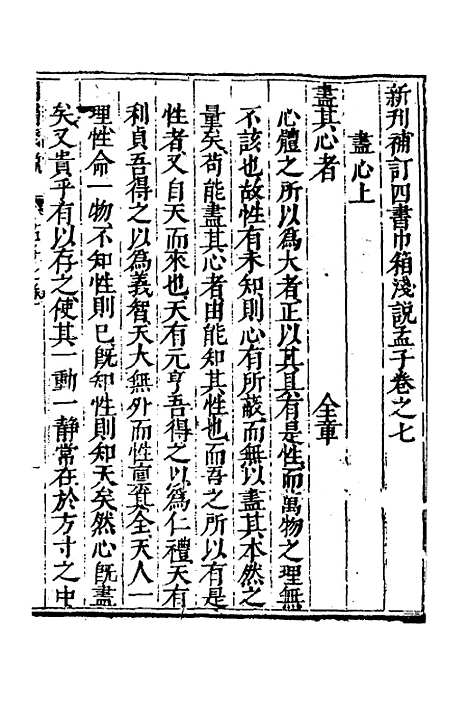 新刊補訂四書巾箱淺說孟子卷之七
盡心上
盡其心者 全章
心體之所以為大者正以其具有是性而萬物之理無
不該也故性有未知則心有所蔽而無以盡其本然之
量矣苟能盡其心者由能知其性也而吾之所以有是
性者又自天而來也天有元亨吾得之以為仁禮天有
利貞吾得之以為義智天大無外而性稟其全天人一
理性命一物不知性則已既知性則知天矣然心既盡
矣又貴乎有以存之使其一動一靜常在於方寸之中